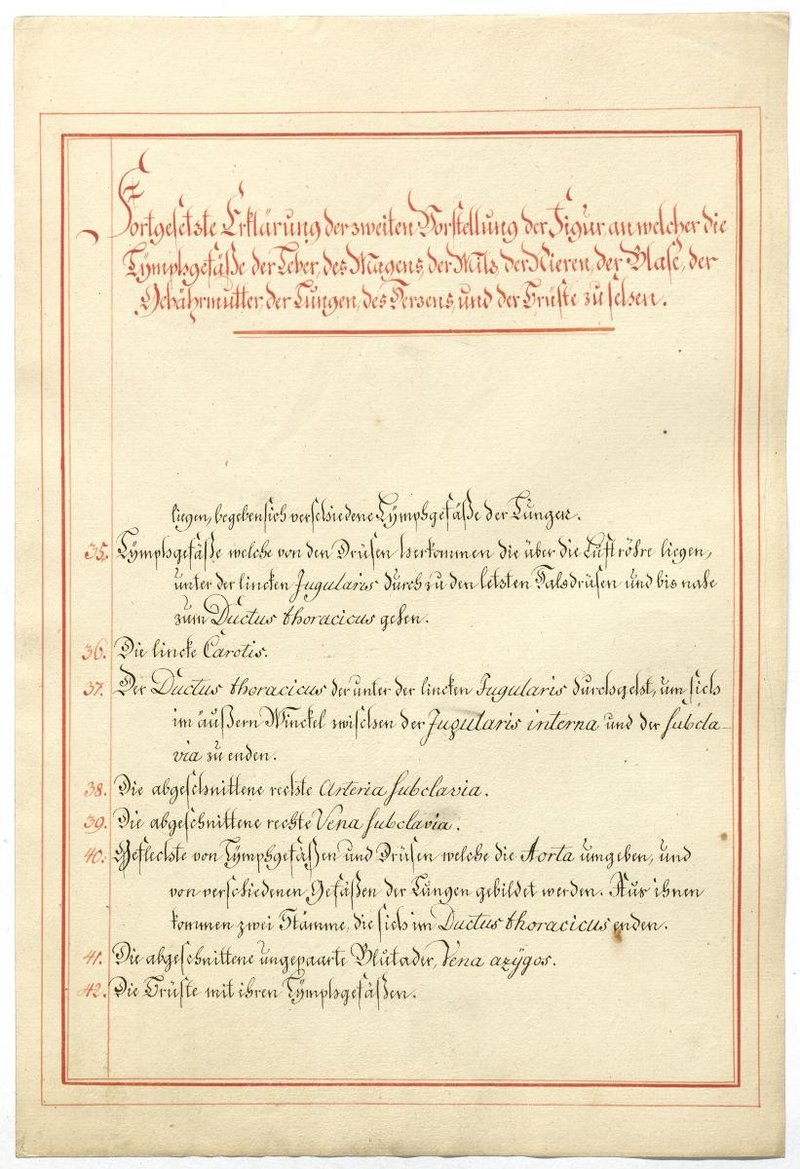 Fortgesetzte Erklärung der zweiten Vorstellung der Figur, an welcher die
Lÿmphgefäße der Leber, des Magens, der Milz, der Nieren, der Blase, der
Gebährmutter, der Lungen, des Herzens, und der Brüste zu sehen.
liegen, begeben sich verschiedene Lÿmphgefäße der Lungen.
35. Lÿmphgefäße welche von den Drüsen herkommen die über die Luftröhre liegen,
unter der lincken Jugularis durch zu den letzten Halsdrüsen und bis nahe
zum Ductus thoracicus gehen.
36. Die lincke Carotis.
37. Der Ductus thoracicus der unter der lincken Jugularis durchgeht, um sich
im äußern Winckel zwischen der Jugularis interna und der subcla-
via zu enden.
38. Die abgeschnittene rechte Arteria subclavia.
39. Die abgeschnittene rechte Vena subclavia.
40. Geflechte von Lÿmphgefäßen und Drüsen welche die Aorta umgeben, und
von verschiedenen Gefäßen der Lungen gebildet werden. Aus ihnen
kommen zwei Stämme, die sich im Ductus thoracicus enden.
41. Die abgeschnittene ungepaarte Blutader, Vena azÿgos.
42. Die Brüste mit ihren Lÿmphgefäßen.